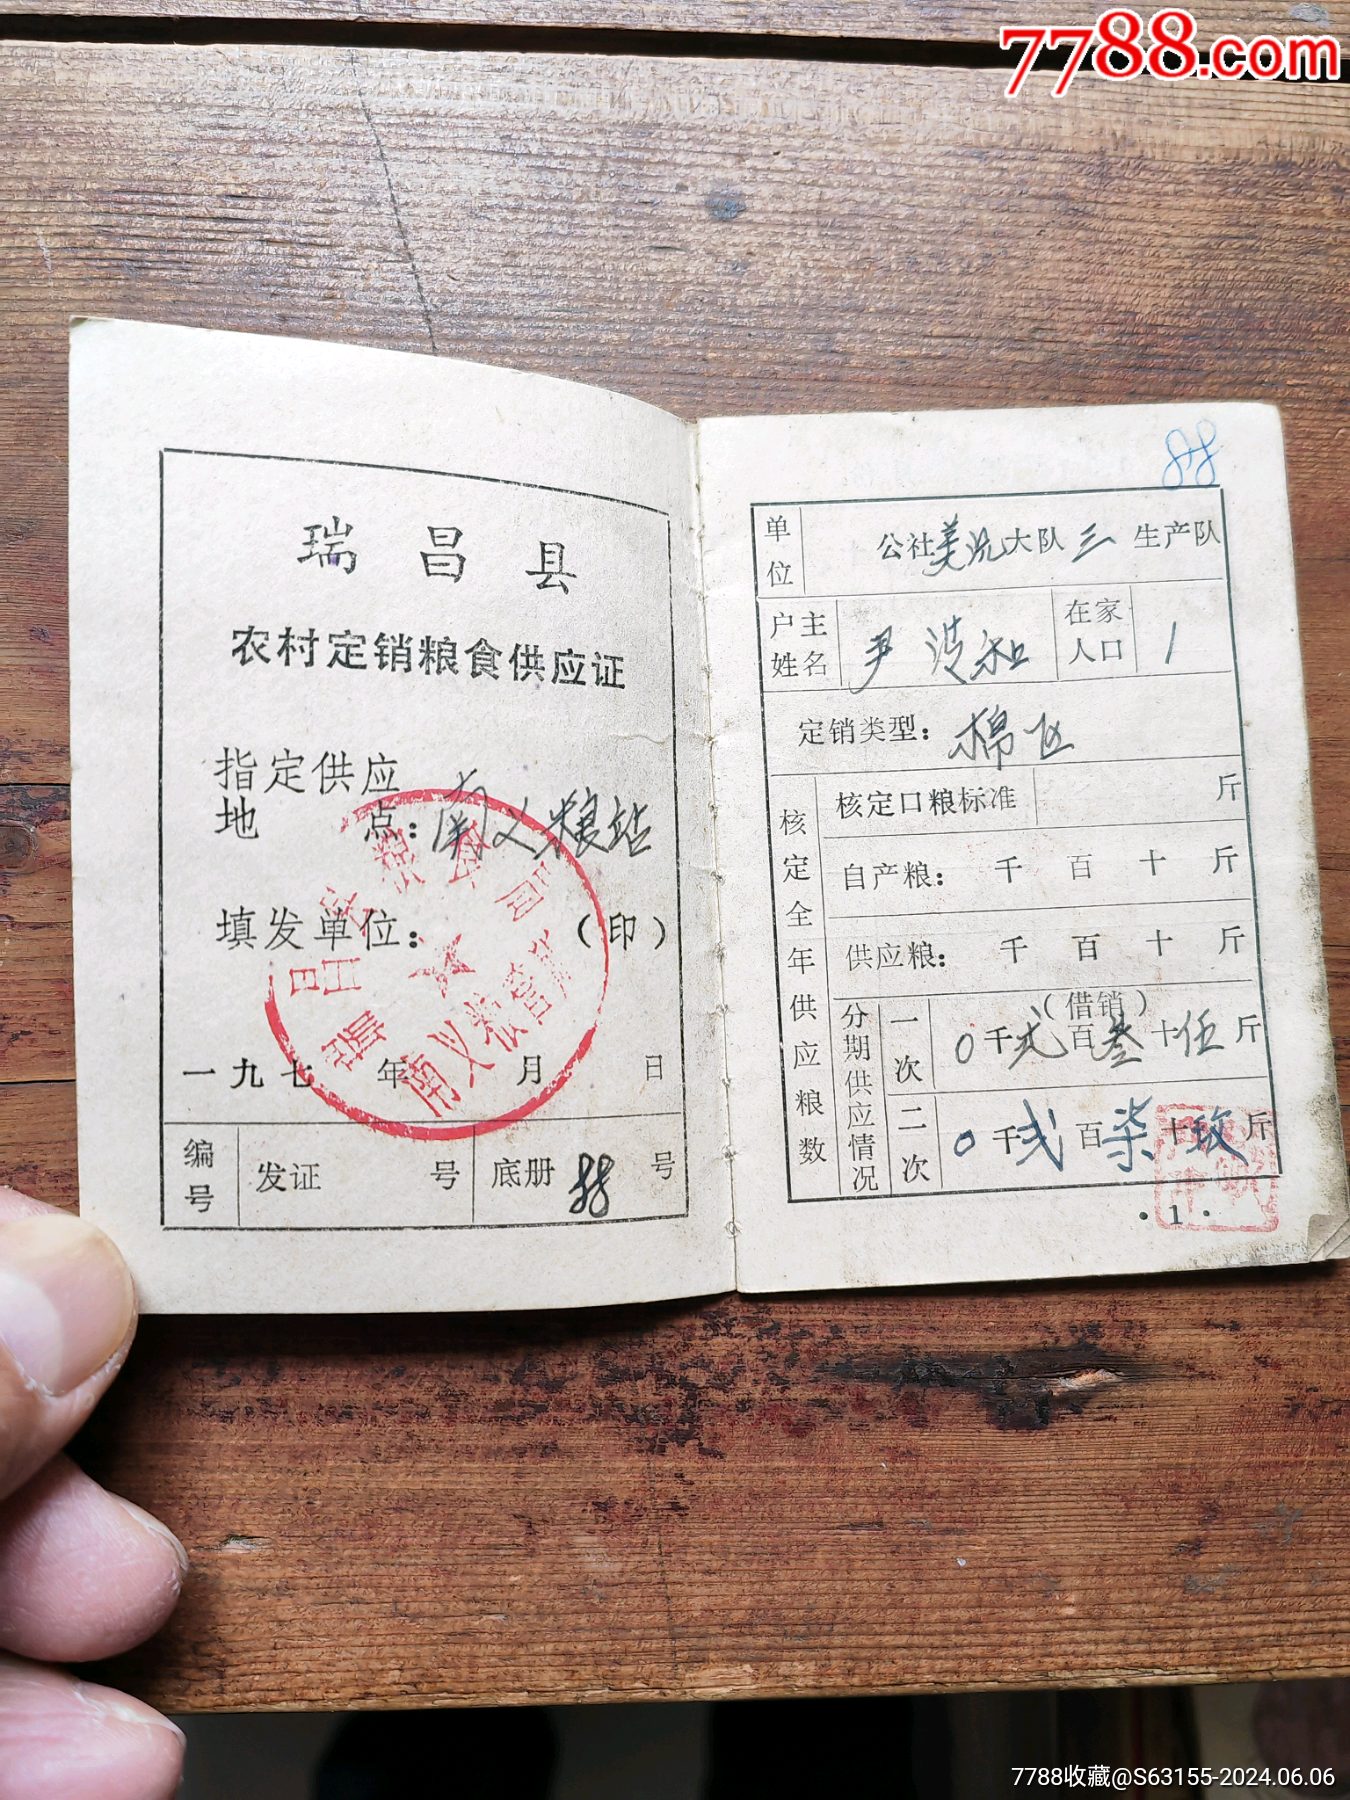 7788.com
瑞昌县
农村定销粮食供应证
指定供应
地点：南义粮站
填发单位：（印）
一九七 年 月 日
瑞昌县粮食局
南义粮管所
编号 发证 号 底册 88 号
88
单位 公社美沅大队三生产队
户主姓名 尹 在家人口 1
定销类型：棉区
核定全年供应粮数
核定口粮标准 斤
自产粮： 千 百 十 斤
供应粮： 千 百 十 斤
分期供应情况
（借销）
一次 0千弍百叁十伍斤
二次 0千弍百柒十玖斤
·1·
7788收藏@S63155-2024.06.06